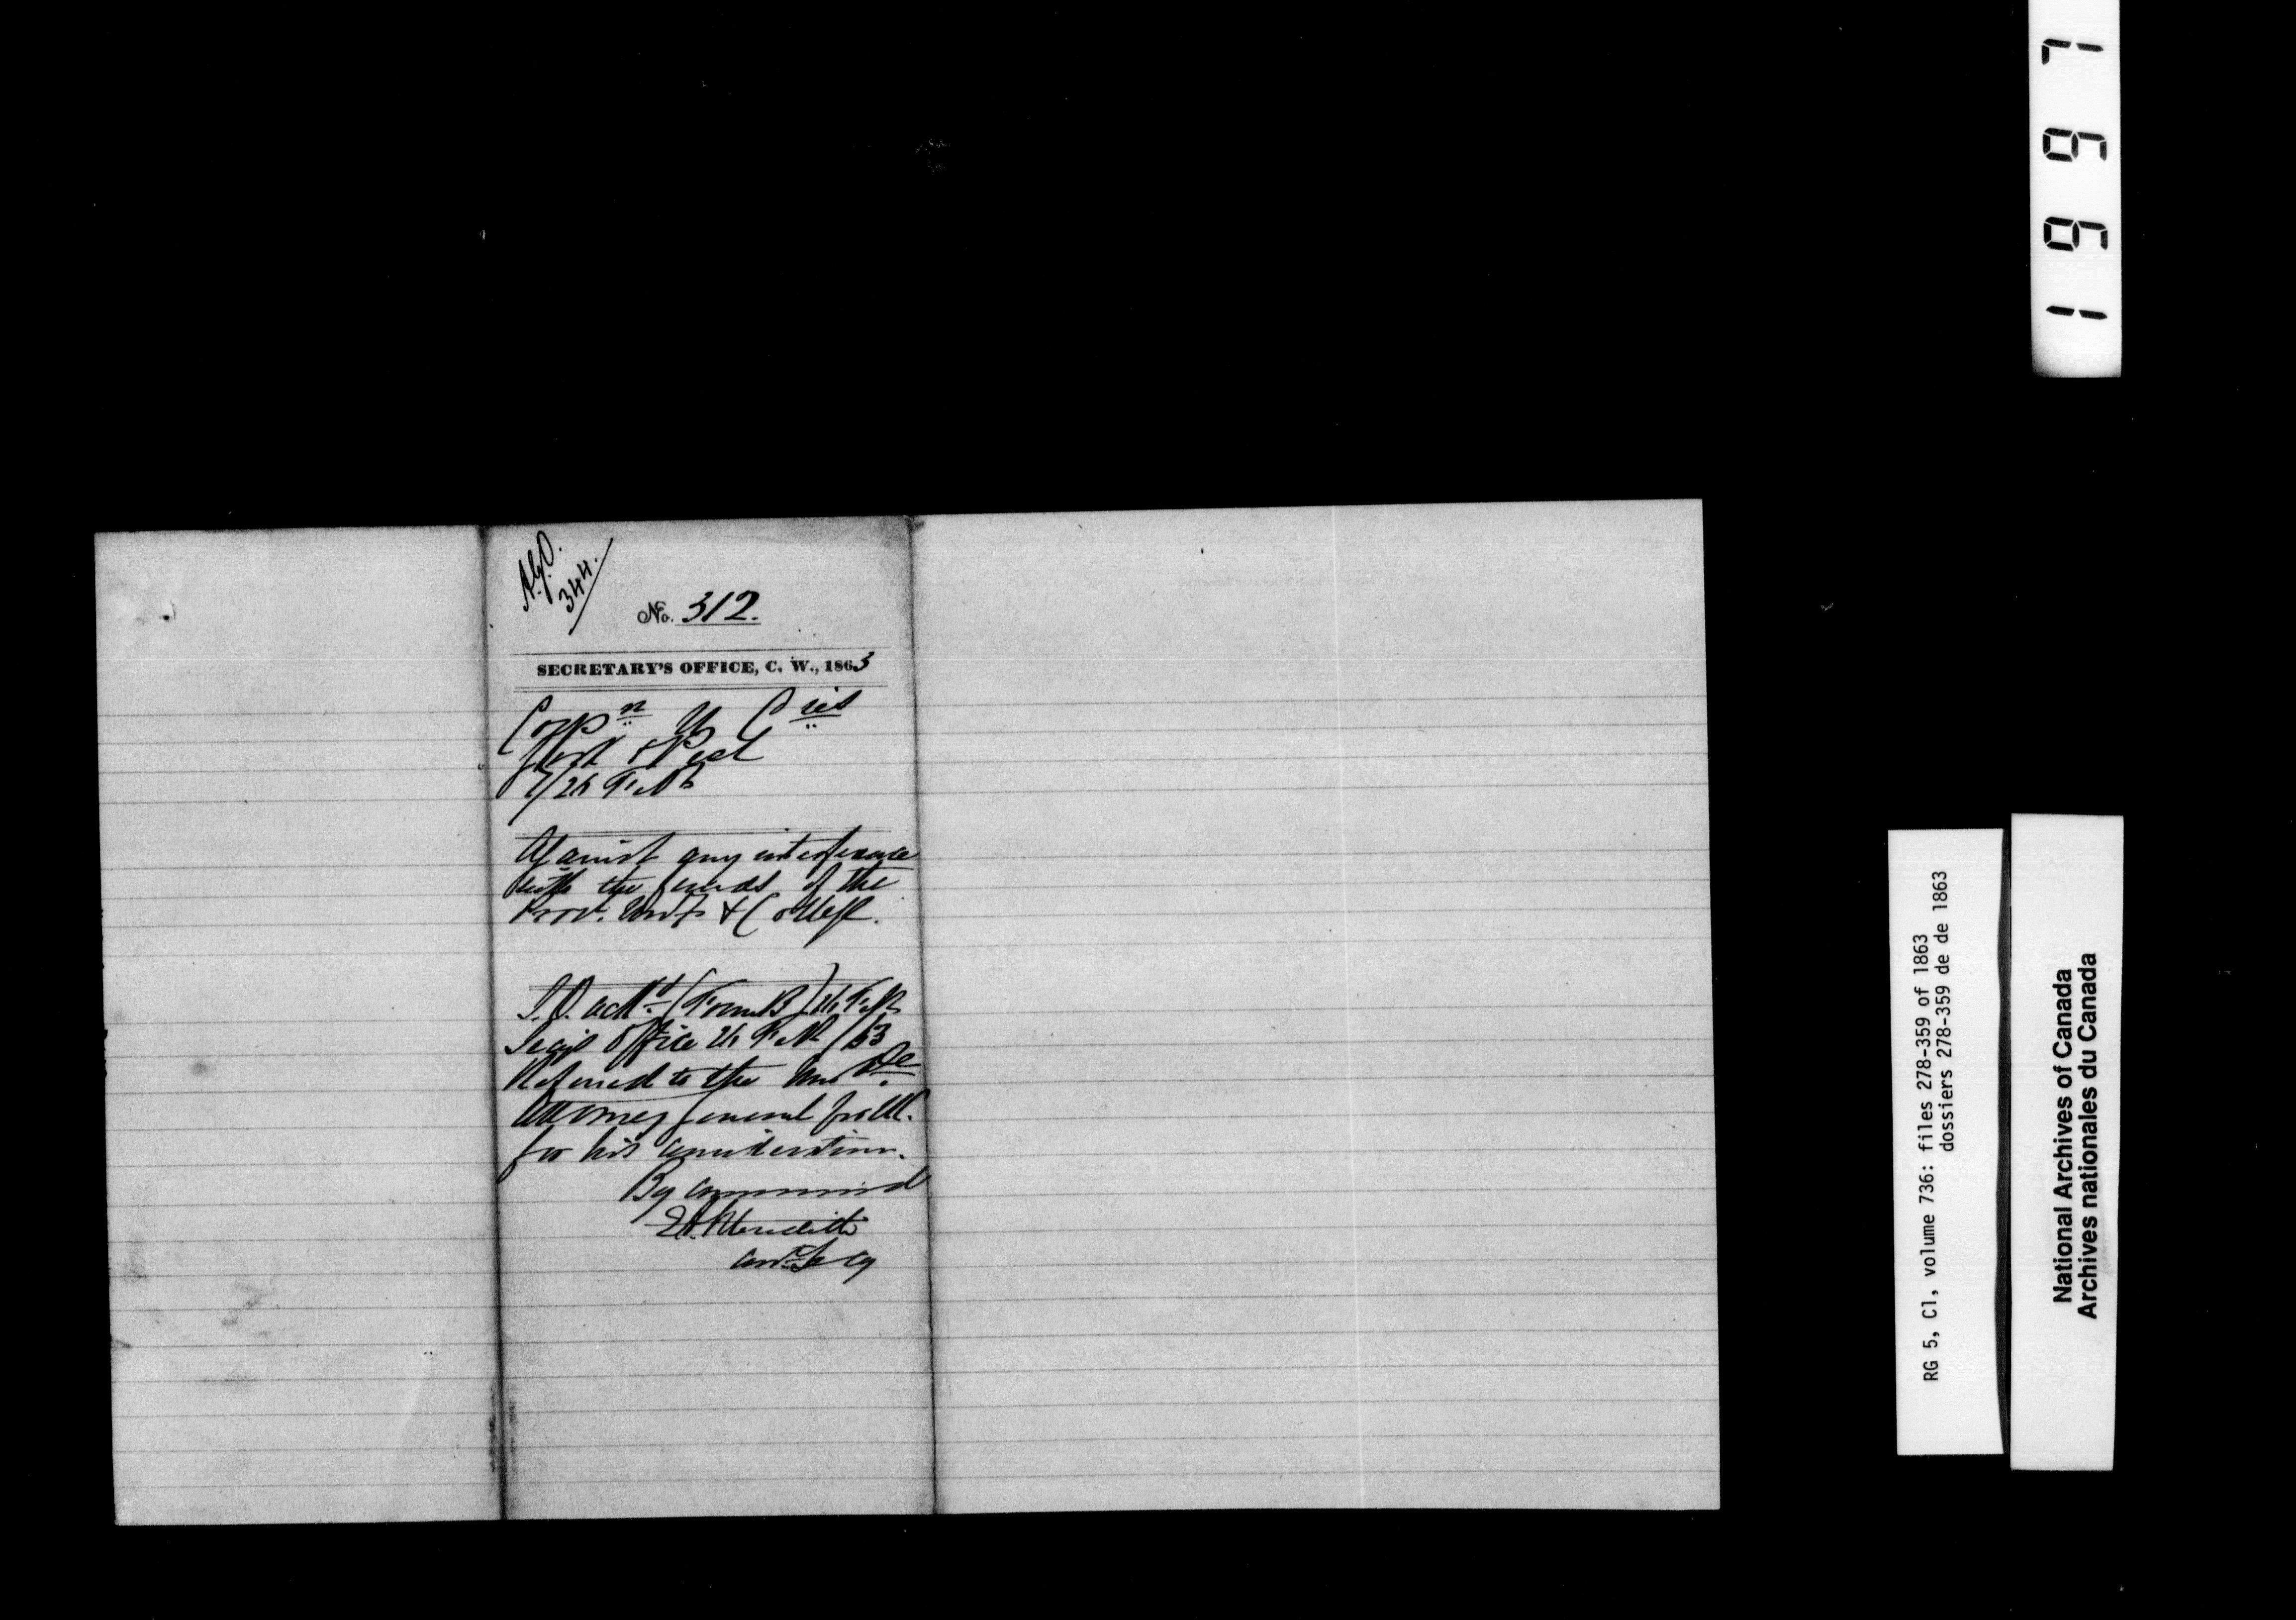 A.G.O.
344.
No. 312.
SECRETARY'S OFFICE, C. W., 1863
Corpn U Cies
York & Peel
26 Feb
Against any interference
with the funds of the
Prov. Univ & College.
ackd (Form B) 26 Feb
Secys Office 26 Feb /63
Referred to the Honble
Attorney General for
for his consideration.
By Command
E A Meredith
Asst Secy
1997
RG 5, C1, volume 736: files 278-359 of 1863
dossiers 278-359 de de 1863
National Archives of Canada
Archives nationales du Canada